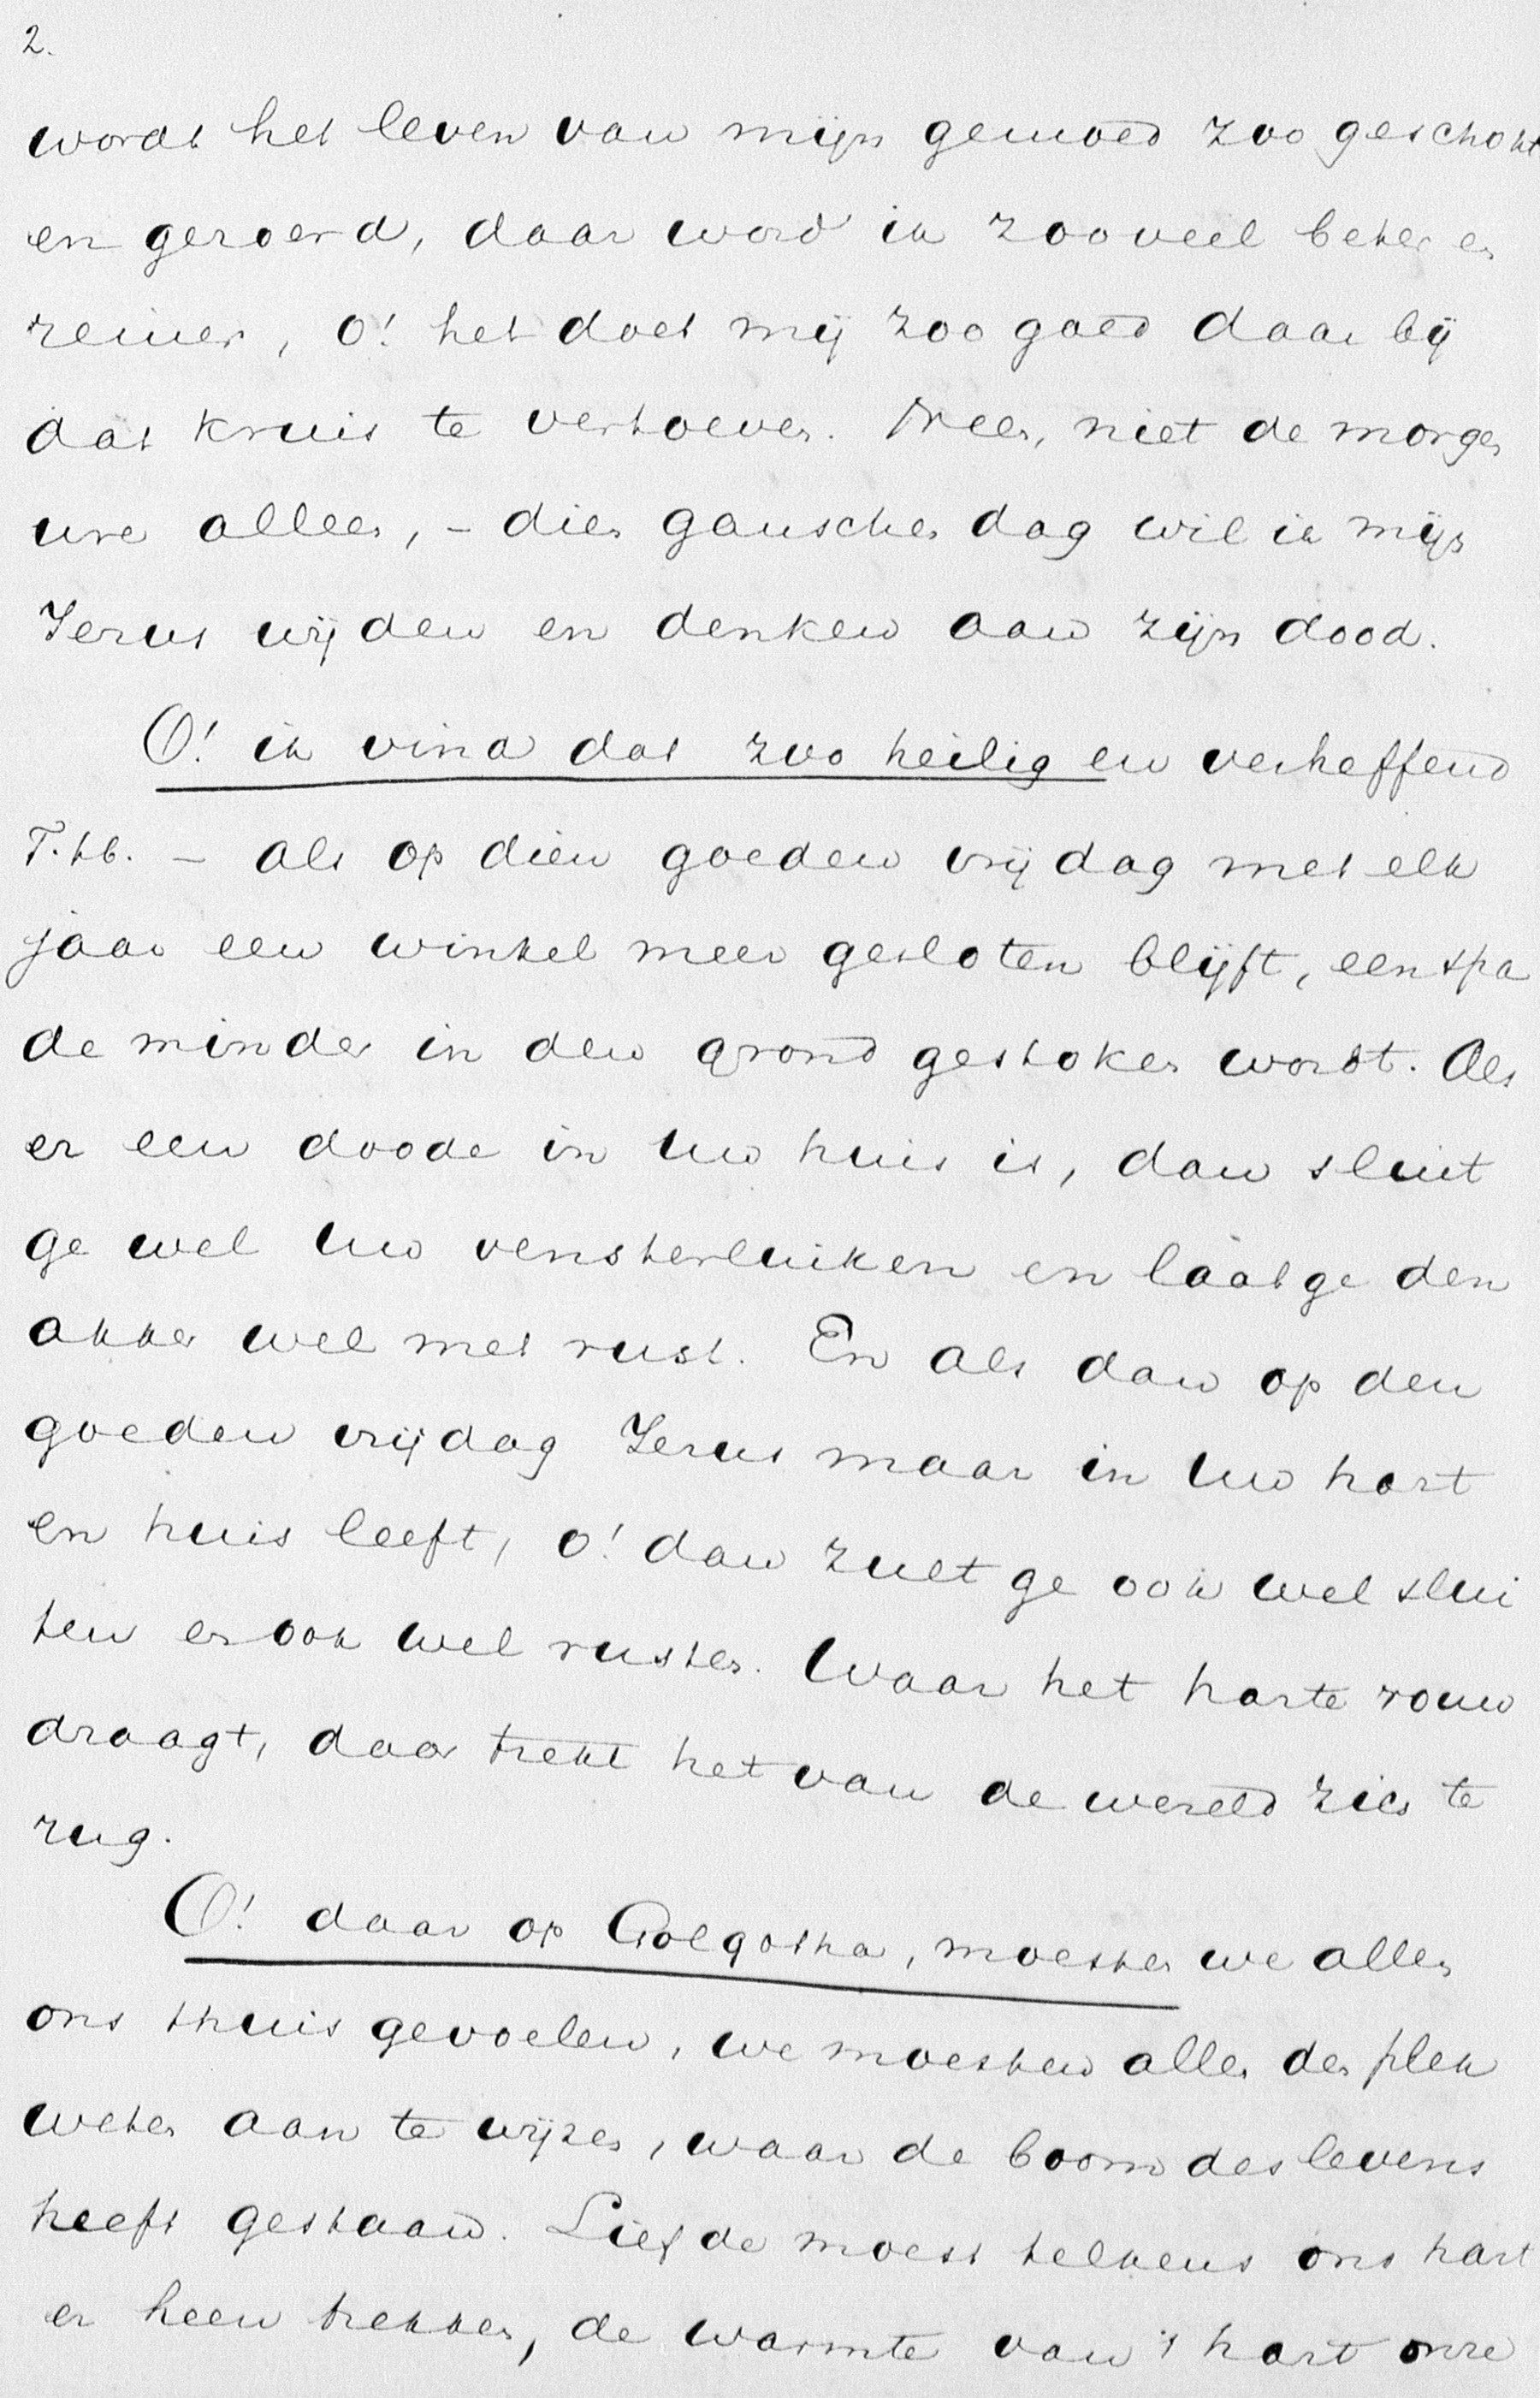 2.
wordt het leven van mijn gemoed zoo geschokt
en geroerd, daar word ik zooveel beter en
reiner, o! het doet mij zoo goed daar bij
dat kruis te vertoeven. Neen, niet de morgen
ure alleen, – dien ganschen dag wil ik mijn
Jezus wijden en denken aan zijn dood.
O! ik vind dat zoo heilig en verheffend
T.tb. – als op dien goeden vrijdag met elk
jaar een winkel meer gesloten blijft, een spa
de minder in den grond gestoken wordt. Als
er een doode in Uw huis is, dan sluit
ge wel Uw vensterluiken en láát ge den
akker wel met rust. En als dan op den
goeden vrijdag Jezus maar in Uw hart
en huis leeft, o! dan zult ge ook wel slui
ten en ook wel rusten. Waar het harte rouw
draagt, daar trekt het van de wereld zich te
rug.
O! daar op Golgotha, moesten we allen
ons thuis gevoelen, we moesten allen den plek
weten aan te wijzen, waar de boom des levens
heeft gestaan. Liefde moest telkens ons hart
er heen trekken, de warmte van 't hart onze